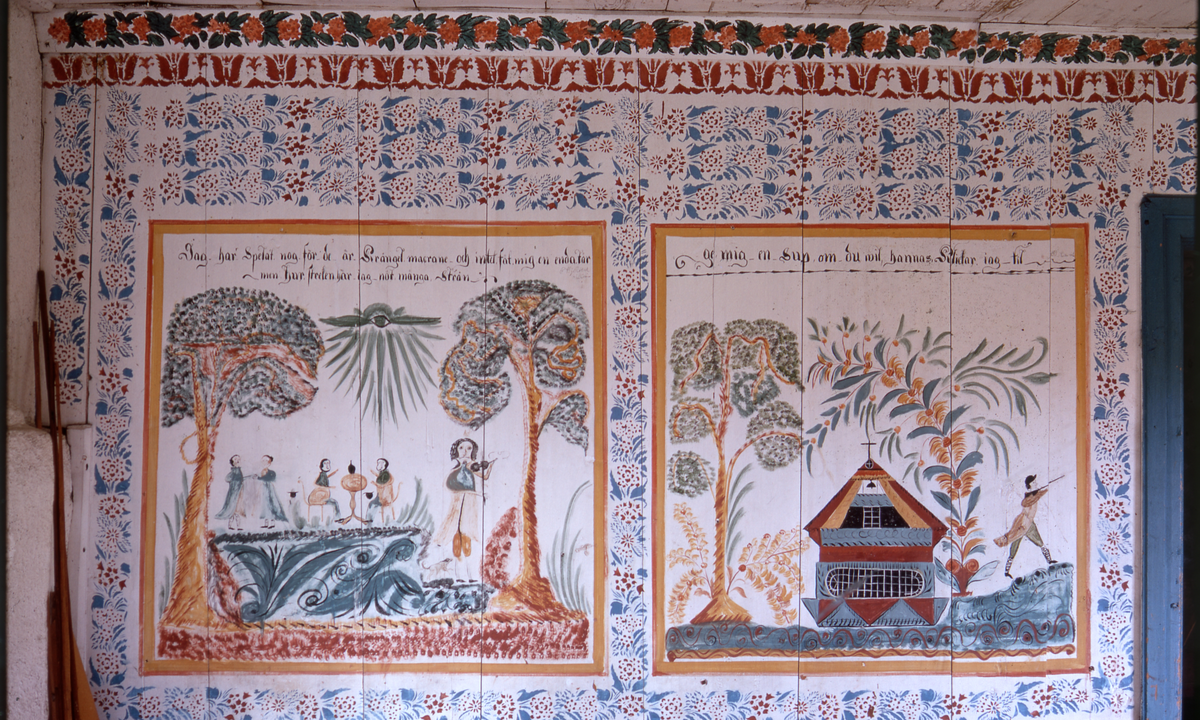 Jag har Spelat nog för de är Srängel macrane och intet fåt mig en enda tår
men hur strelen här jag nöt många Strån
ge mig en Sup om du wil hannas Schelar iag til